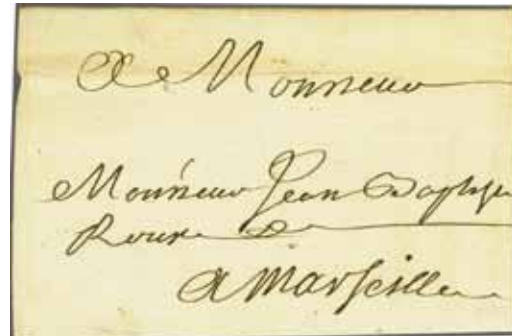 A Monsieur
Monsieur Jean Baptiste
Roux
A Marseille